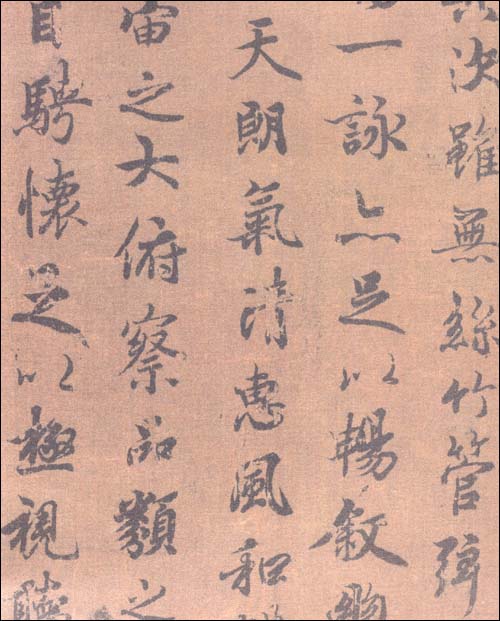 次雖無絲竹管弦
一詠亦足以暢敘幽
天朗氣清惠風和
宙之大俯察品類之
目騁懷足以極視聽